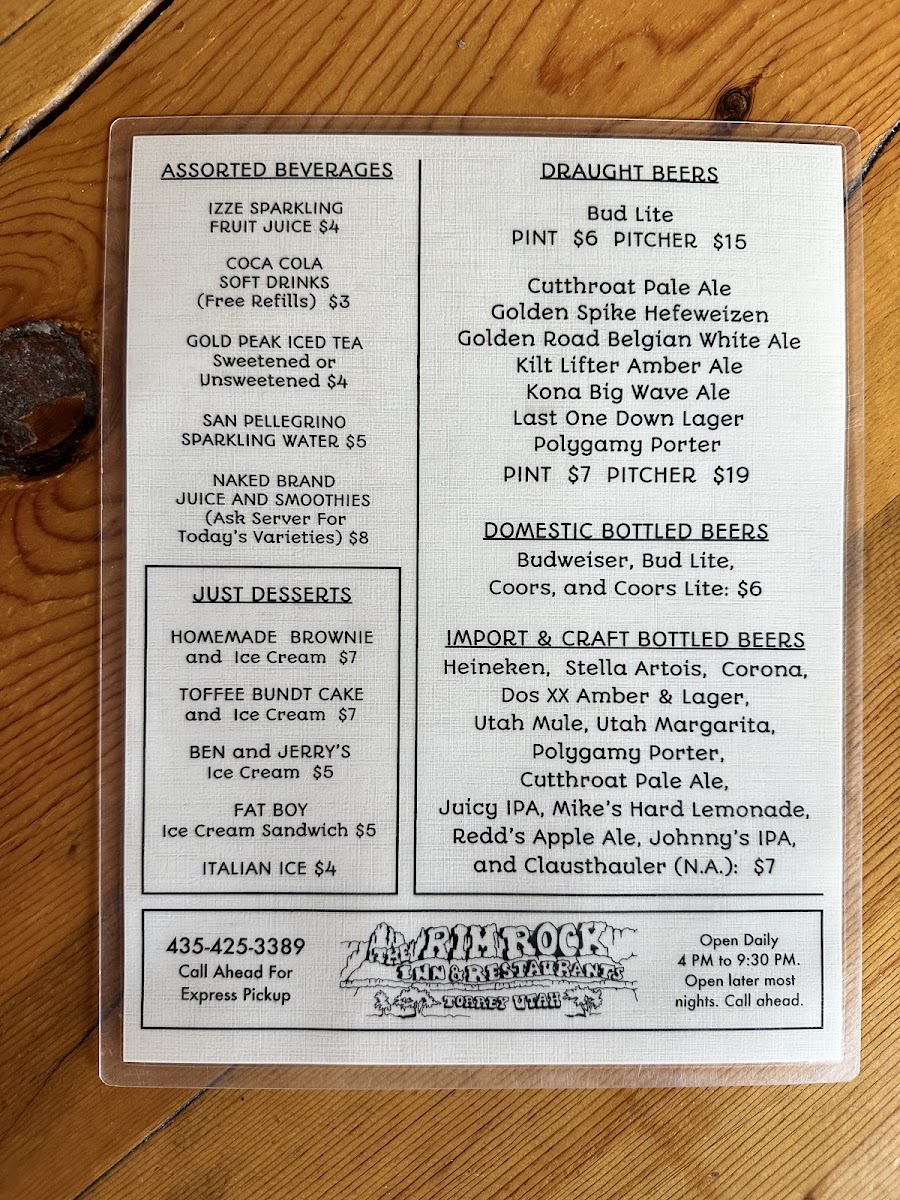 ASSORTED BEVERAGES
IZZE SPARKLING
FRUIT JUICE $4
COCA COLA
SOFT DRINKS
(Free Refills) $3
GOLD PEAK ICED TEA
Sweetened or
Unsweetened $4
SAN PELLEGRINO
SPARKLING WATER $5
NAKED BRAND
JUICE AND SMOOTHIES
(Ask Server For
Today's Varieties) $8
JUST DESSERTS
HOMEMADE BROWNIE
and Ice Cream $7
TOFFEE BUNDT CAKE
and Ice Cream $7
BEN and JERRY'S
Ice Cream $5
FAT BOY
Ice Cream Sandwich $5
ITALIAN ICE $4
DRAUGHT BEERS
Bud Lite
PINT $6 PITCHER $15
Cutthroat Pale Ale
Golden Spike Hefeweizen
Golden Road Belgian White Ale
Kilt Lifter Amber Ale
Kona Big Wave Ale
Last One Down Lager
Polygamy Porter
PINT $7 PITCHER $19
DOMESTIC BOTTLED BEERS
Budweiser, Bud Lite,
Coors, and Coors Lite: $6
IMPORT & CRAFT BOTTLED BEERS
Heineken, Stella Artois, Corona,
Dos XX Amber & Lager,
Utah Mule, Utah Margarita,
Polygamy Porter,
Cutthroat Pale Ale,
Juicy IPA, Mike's Hard Lemonade,
Redd's Apple Ale, Johnny's IPA,
and Clausthauler (N.A.): $7
435-425-3389
Call Ahead For
Express Pickup
THE RIM ROCK
INN & RESTAURANTS
TORREY UTAH
Open Daily
4 PM to 9:30 PM.
Open later most
nights. Call ahead.